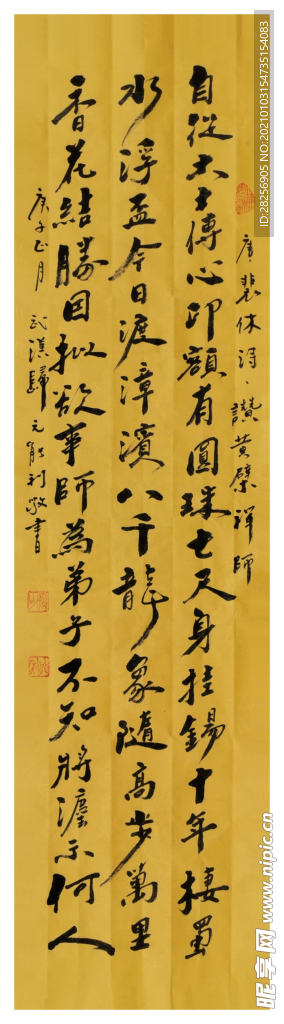 唐、裴休詩、讚黄檗禅師
自從大士傳心印額有圓珠七尺身挂錫十年棲蜀
水浮盃今日渡漳濱八千龍象隨高步萬里
香花結勝因擬欲事師為弟子不知將灋示何人
庚子正月 武漢歸元能利敬書
ID:28256905 NO:20210103154735154083
昵享网 www.nipic.cn